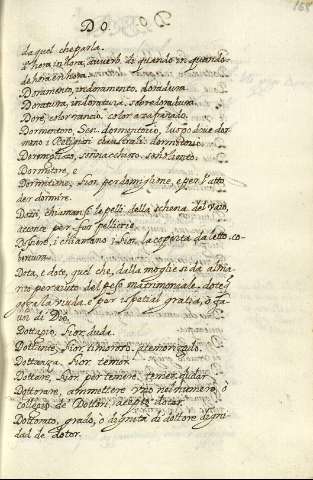 DO.
168
da quel che parla.
d'hora in hora, avverb. de quando en quando.
de hora en hora.
Doramento, indoramento, doradura.
Doratura, indoratura, sobredoradura.
Dorè, color rancio, color azafranado.
Dormentoro, Sen. dormentorio, luogo dove dor
meno i Religiosi claustrali. dormitorio.
Dormiglioso, sonnacchioso. soñoliento.
Dormitore, e
Dormitione, Fior. per dormiglione, e per l'atto
del dormire.
Dossi, chiamansi le pelli della schena del Vaio,
acconce per far pelliccie.
i chiamano i Fior. la coperta da letto. co
bertura.
Dota, e dote, quel che, dalla moglie si da al ma
rito per aiuto del peso matrimoniale. dote y
per la viuda. e per ispetial gratia, o
un di Dio.
Dottagio, Fior. duda.
Fior. timoroso. atemorizado.
Dottanza, Fior. temor.
Dottare, Fior. per temere. temer, dudar.
Dottorare, ammettere uno nel numero, o
collegio de Dottori.
Dottorato, grado, o dignità di dottore. digni
dad de dotor.